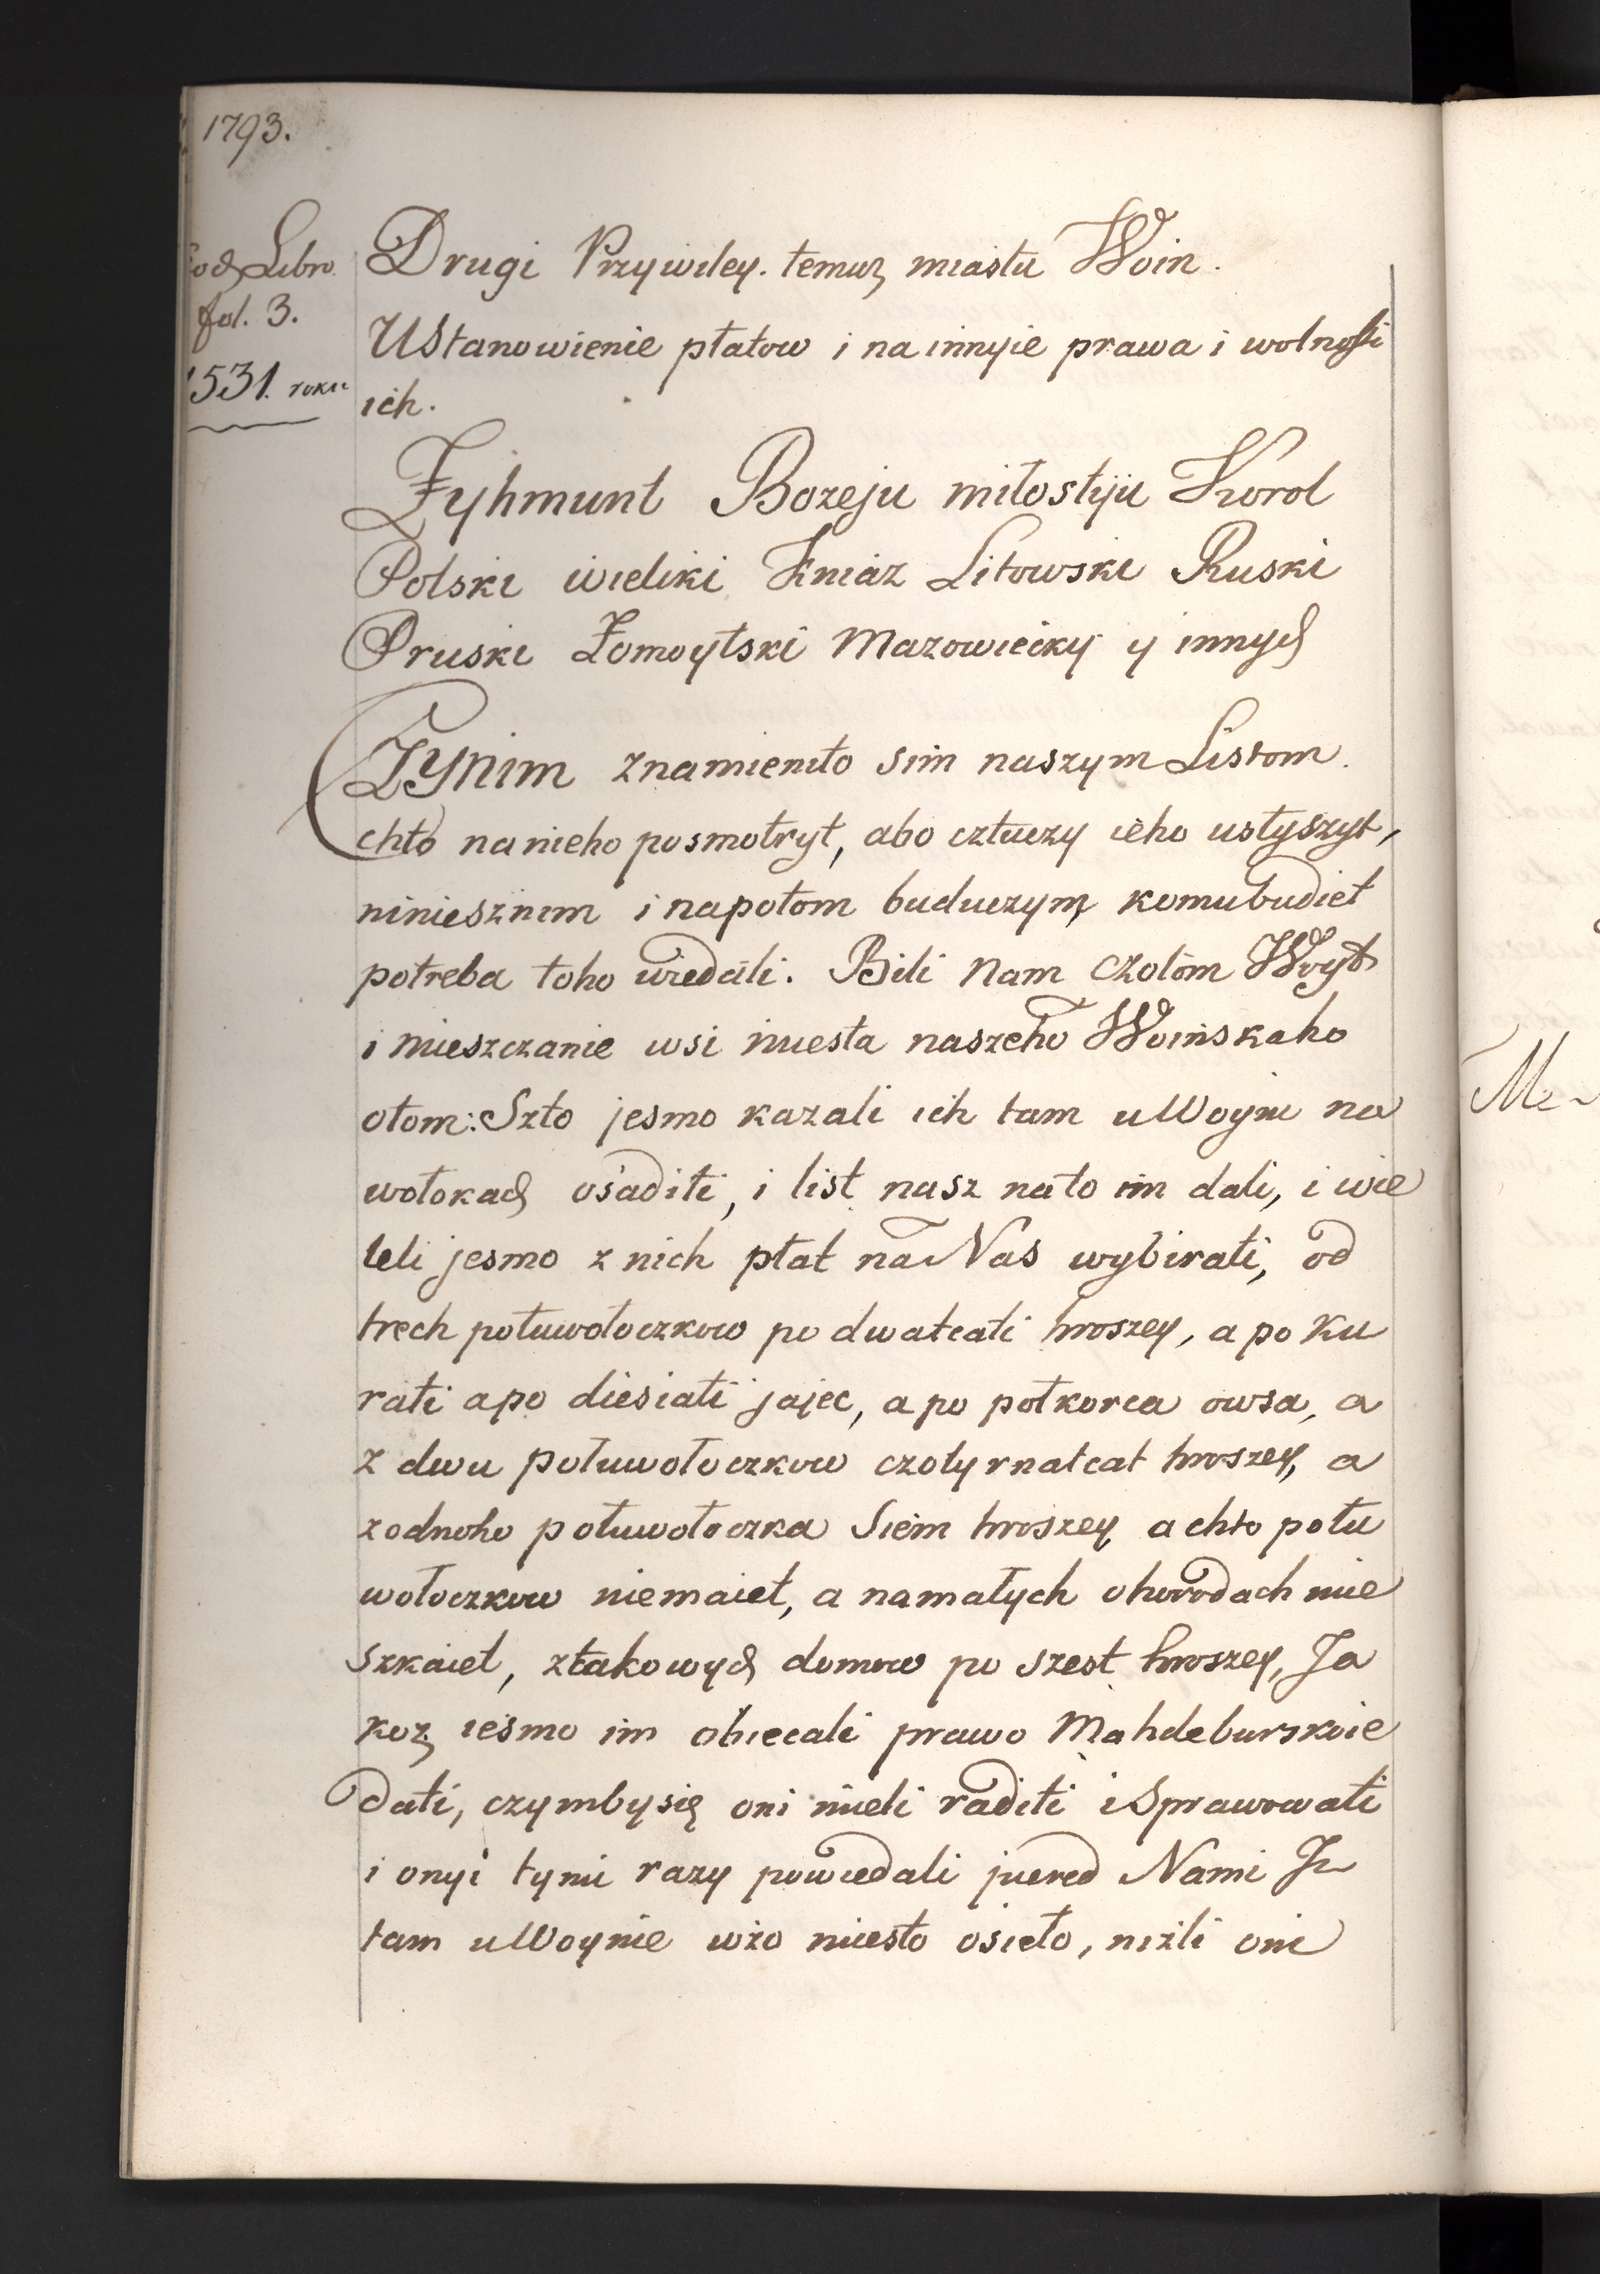 1793.
Libro
fol. 3.
1531. roku
Drugi Przywiley. temuż miastu Woin.
Ustanowienie płatow i na innyie prawa i wolnosti
ich.
Żyhmunt Bozeju miłostiju Korol
Polski wieliki Kniaz Litowski Ruski
Pruski Żomoytski Mazowiecky y innych
Czynim znamienito sim naszym Listom.
chto na nieho posmotryt, abo cztuczy ieho usłyszyt,
niniesznim i napotom buduczym, komu budiet
potreba toho wiedati. Bili Nam czołom Woyt
i mieszczanie wsi miesta naszeho Woinskaho
otom: Szto jesmo kazali ich tam u Woyni na
wołokach osaditi, i list nasz nato im dali, i wie
leli jesmo z nich płat na Nas wybirati, od
trech połuwołoczkow po dwatcati hroszey, a po ku
rati a po diesiati jajec, a po połkorca owsa, a
z dwu połuwołoczkow czotyrnatcat hroszey, a
z odnoho połuwołoczka Siem hroszey a chto połu
wołoczkow niemaiet, a na małych ohorodach mie
szkaiet, z takowych domow po szest hroszey, Ja
koż iesmo im obiecali prawo Mahdeburskoie
dati, czymby się oni mieli raditi i Sprawowati
i onyi tymi razy powiedali pered Nami Iż
tam u Woynie wżo miesto osieło, niżli oni
Me